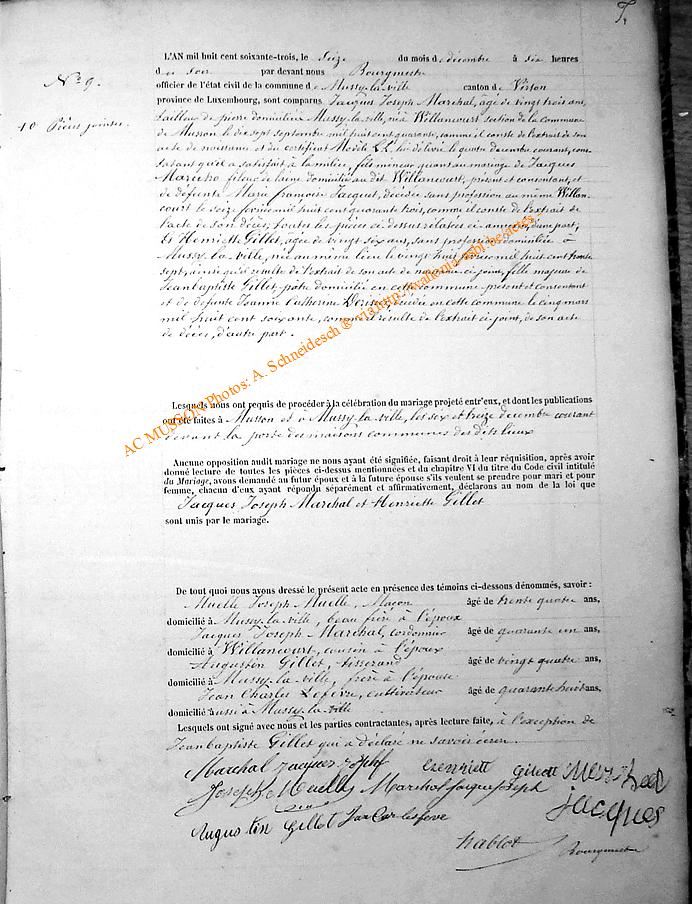 N° 9.
10 Pièces jointes.
L'AN mil huit cent soixante-trois, le seize du mois de décembre à six heures
du soir par devant nous Bourgmestre
officier de l'état civil de la commune de Mussy-la-ville canton de Virton
province de Luxembourg, sont comparus Jacques Joseph Marchal, âgé de vingt trois ans,
tailleur de pierre domicilié à Mussy-la-ville, né à Willancourt section de la commune
de Musson le dix sept septembre mil huit cent quarante, comme il conste de l'extrait de son
acte de naissance et du certificat Modèle LL, lui délivré le quatre décembre courant, con-
statant qu'il a satisfait à la milice, fils mineur quant au mariage de Jacques
Marchal fileur de laine domicilié au dit Willancourt, présent et consentant, et
de défunte Marie françoise Jacquet, décédée sans profession au même Willan-
court le seize février mil huit cent quarante trois, comme il conste de l'extrait de
l'acte de son décès, toutes les pièces ci-dessus relatées ci-annexées, d'une part;
Et Henriette Gillet, agée de vingt six ans, sans profession domiciliée à
Mussy-la-ville, née au même lieu le vingt huit février mil huit cent trente
sept, ainsi qu'il résulte de l'extrait de son acte de naissance ci-joint, fille majeure de
Jean baptiste Gillet, pâtre domicilié en cette commune présent et consentant
et de défunte Jeanne Catherine décédée en cette commune le cinq mars
mil huit cent soixante, comme il résulte de l'extrait ci-joint, de son acte
de décès, d'autre part.
Lesquels nous ont requis de procéder à la célébration du mariage projeté entr'eux, et dont les publications
ont été faites à Musson et à Mussy-la-ville, les six et treize décembre courant
devant la porte des maisons communes des dits lieux
AC MUSSON Photos: A. Schneidesch ® via http://
Aucune opposition audit mariage ne nous ayant été signifiée, faisant droit à leur réquisition, après avoir
donné lecture de toutes les pièces ci-dessus mentionnées et du chapitre VI du titre du Code civil intitulé
du Mariage, avons demandé au futur époux et à la future épouse s'ils veulent se prendre pour mari et pour
femme, chacun d'eux ayant répondu séparément et affirmativement, déclarons au nom de la loi que
Jacques Joseph Marchal et Henriette Gillet
sont unis par le mariage.
De tout quoi nous avons dressé le présent acte en présence des témoins ci-dessous dénommés, savoir :
Muelle Joseph Muelle, Maçon âgé de trente quatre ans,
domicilié à Mussy-la-ville, beau frère à l'époux
Jacques Joseph Marchal, cordonnier âgé de quarante un ans,
domicilié à Willancourt, cousin à l'époux
Augustin Gillet, tisserand âgé de vingt quatre ans,
domicilié à Mussy-la-ville, frère à l'épouse
Jean Charles Lefèvre, cultivateur âgé de quarante huit ans,
domicilié aussi à Mussy-la-ville
Lesquels ont signé avec nous et les parties contractantes, après lecture faite, à l'exception de
Jean baptiste Gillet qui a déclaré ne savoir écrire.
Marchal jacques joseph
Joseph Muelle Marchal jacque joseph
jacques
Augustin Gillet
Bourgmestre